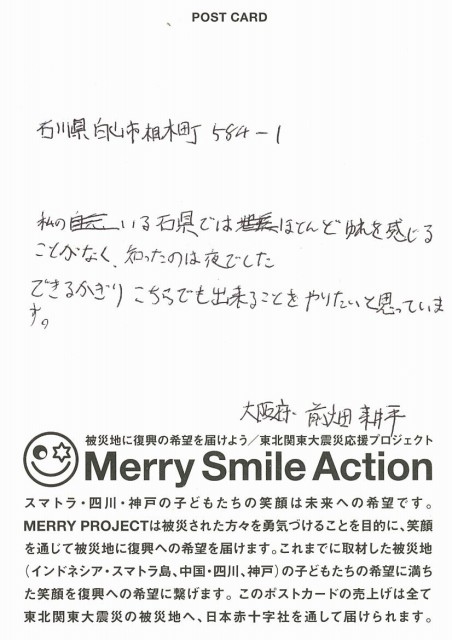 POST CARD
石川県白山市相木町 584-1
私の いる石県では ほとんど ゆれを感じる
ことがなく、知ったのは夜でした
できるかぎり こちらでも出来ることをやりたいと思っていま
す。
大阪府 前畑 耕平
被災地に復興の希望を届けよう／東北関東大震災応援プロジェクト
Merry Smile Action
スマトラ・四川・神戸の子どもたちの笑顔は未来への希望です。
MERRY PROJECTは被災された方々を勇気づけることを目的に、笑顔
を通じて被災地に復興への希望を届けます。これまでに取材した被災地
（インドネシア・スマトラ島、中国・四川、神戸）の子どもたちの希望に満ち
た笑顔を復興への希望に繋げます。このポストカードの売上げは全て
東北関東大震災の被災地へ、日本赤十字社を通して届けられます。